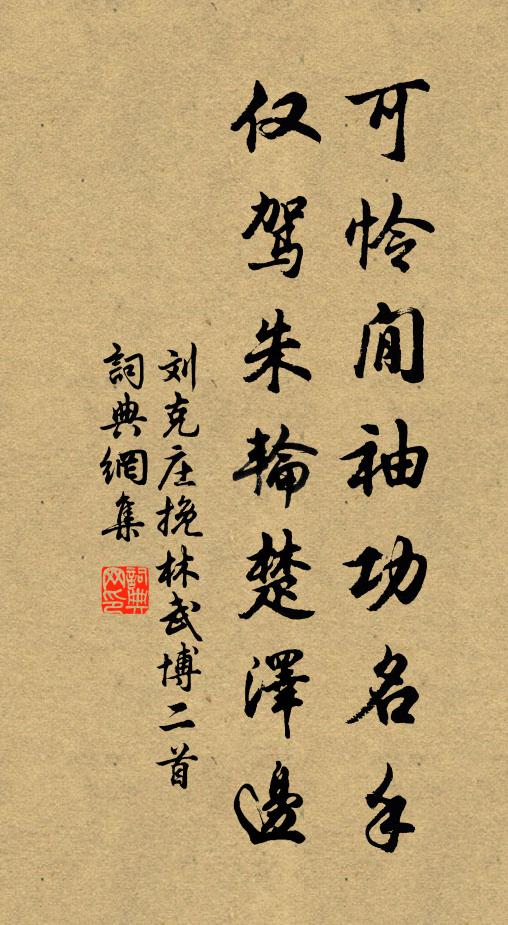 可怜间袖功名手
仅驾朱轮楚泽边
刘克庄挽林武博二首
词典網集
詞典網印